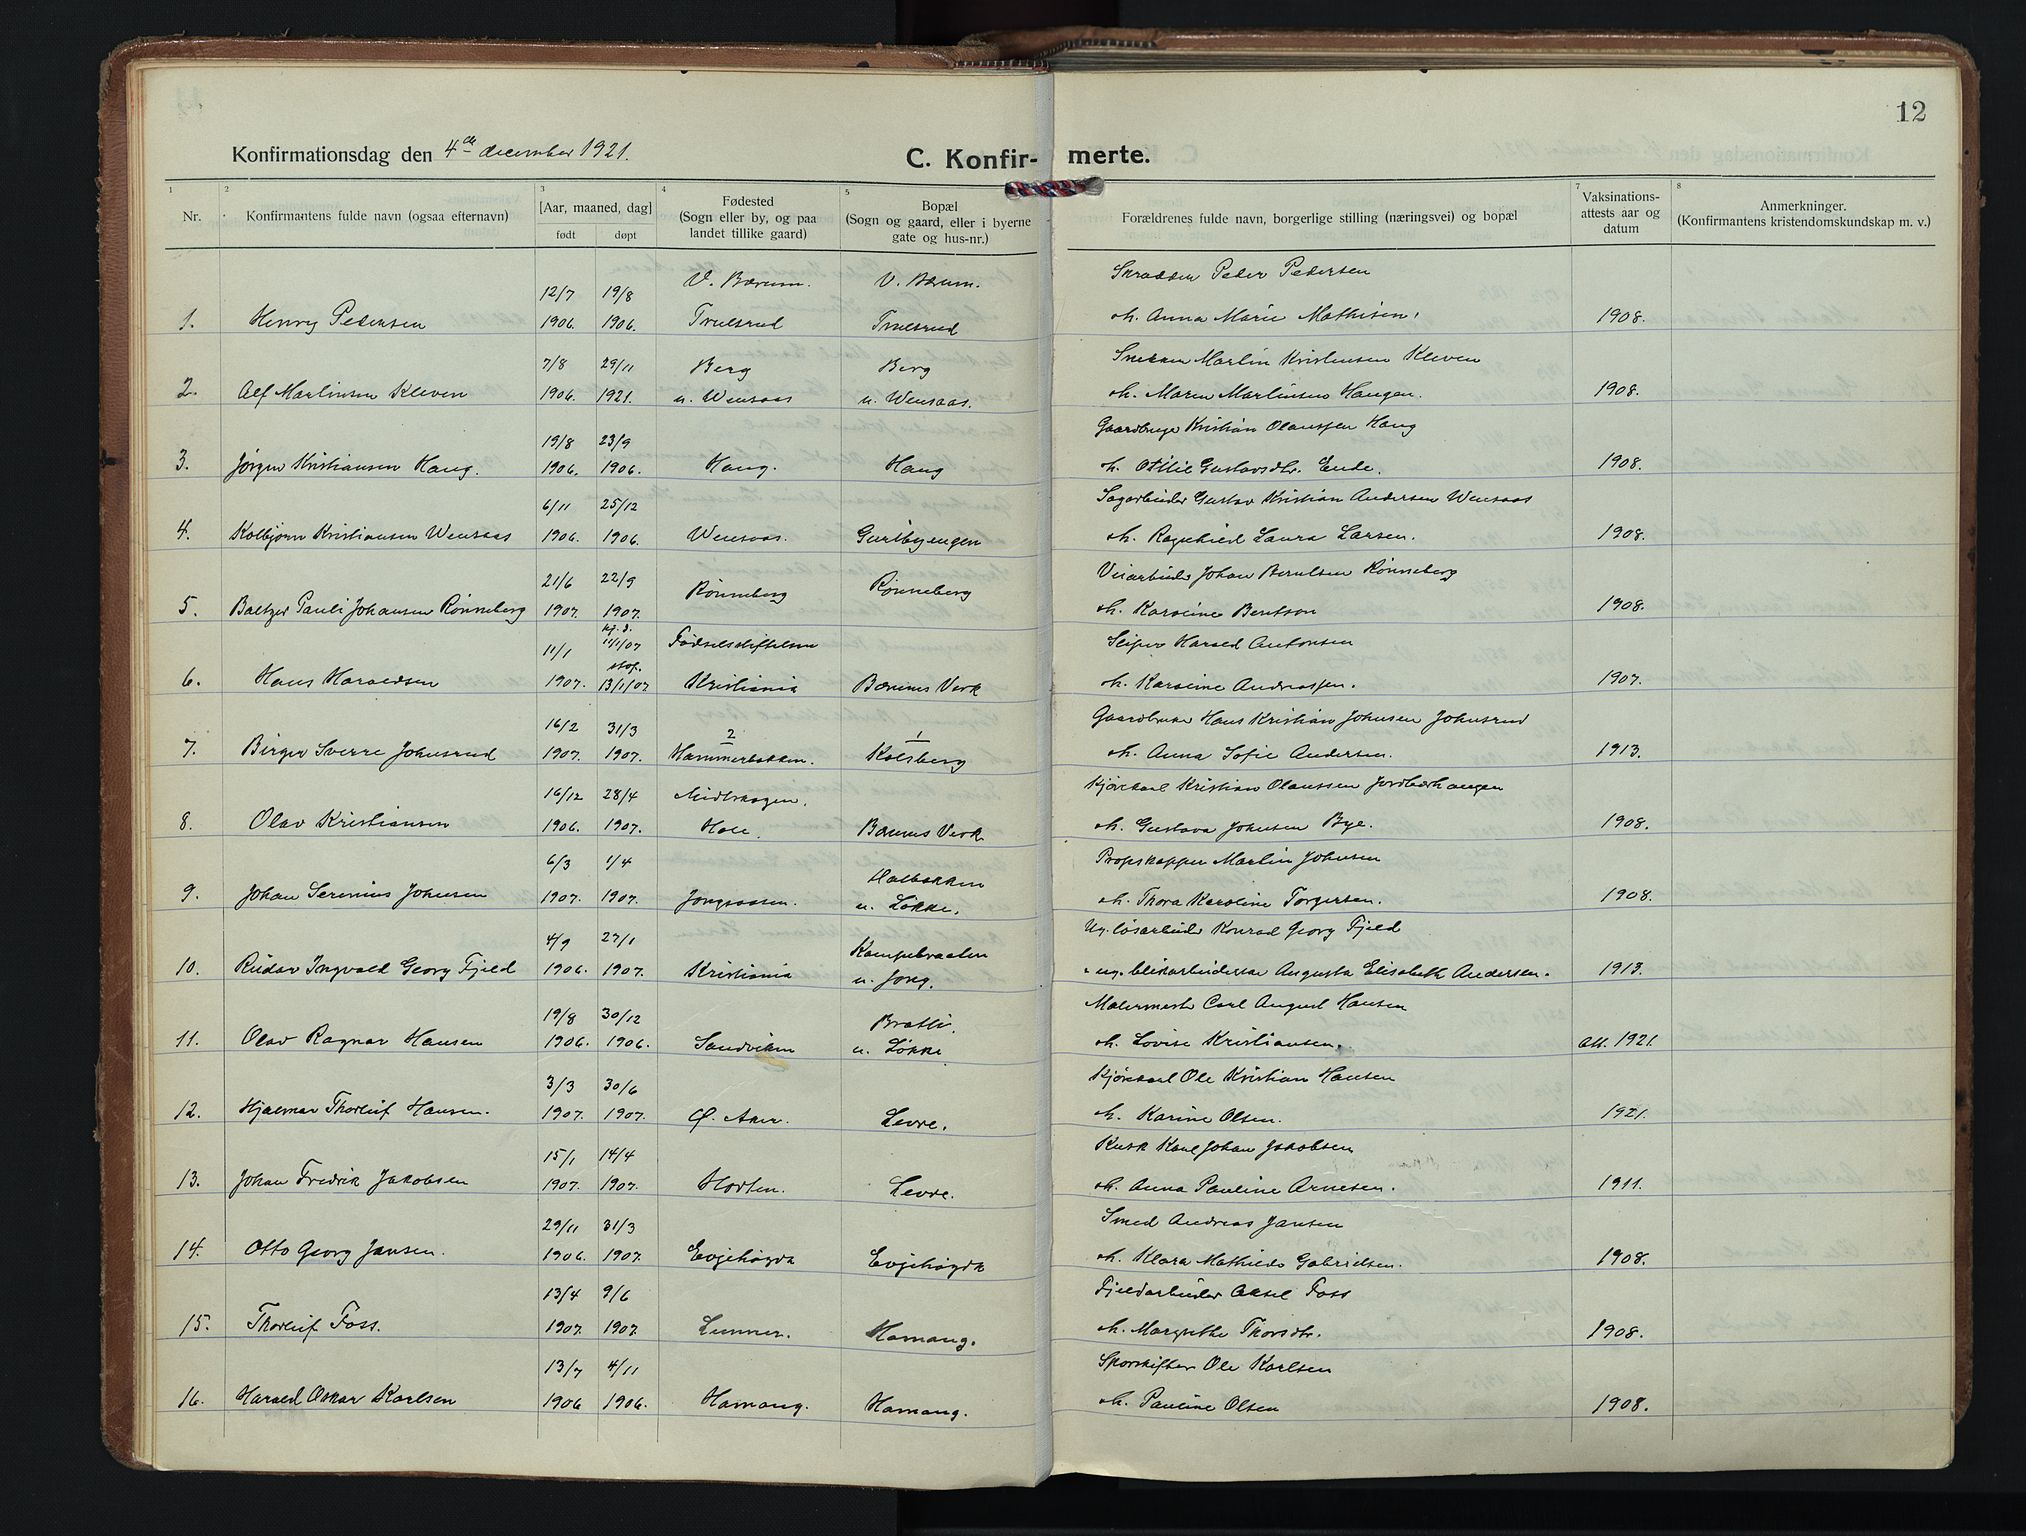 12
Konfirmationsdag den 4de december 1921.
C. Konfir- merte.
1 2 3 4 5 7 8
Nr. Konfirmantens fulde navn (ogsaa efternavn) [Aar, maaned, dag] født døpt Fødested (Sogn eller by, og paa landet tillike gaard) Bopæl (Sogn og gaard, eller i byerne gate og hus-nr.) Forældrenes fulde navn, borgerlige stilling (næringsvei) og bopæl Vaksinations-attests aar og datum Anmerkninger. (Konfirmantens kristendomskundskap m. v.)
12/7 19/8 V. Bærum. V. Bærum. Skrædder Peder Pedersen
1. Henry Pedersen 1906. 1906. Trulsrud Trulsrud oh. Anna Marie Mathisen. 1908.
7/8 29/11 Berg Berg Snekker Martin Kristensen Kleven
2. Alf Martinsen Kleven 1906. 1921. u. Wensaas u. Wensaas. oh. Maren Martinsen Haugen. 1908.
19/8 23/9 Gaardbruger Kristian Olaussen Haug
3. Jørgen Kristiansen Haug. 1906. 1906. Haug. Haug h. Otilie Gustavsdtr. Ende. 1908.
6/11 25/12 Sagarbeider Gustav Kristian Andersen Wensaas
4. Kolbjørn Kristiansen Wensaas 1906. 1906. Wensaas. Guribyengen oh. Ragnhild Laura Larsen. 1908.
21/6 22/9 Rønneberg Rønneberg Veiarbeider Johan Berntsen Rønneberg
5. Baltzer Pauli Johansen Rønneberg 1907. 1907. oh. Karoline Bentson 1908.
11/1 hj. d. 11/1/07 Fødselsstiftelsen Harald Antonsen
6. Hans Haraldsen 1907. staf. 13/1/07 Kristiania Bærums Verk oh. Karoline Andreassen. 1907.
16/2 31/3 2 1 Gaardbruker Hans Kristian Johnsen Johnsrud
7. Birger Sverre Johnsrud 1907. 1907. Hammerbakken. Kolsberg oh. Anna Sofie Andersen. 1913.
16/12 28/4 Midtskogen. Kjørekarl Kristian Olaussen Jordbærhaugen
8. Olav Kristiansen 1906. 1907. Hole. Bærums Verk oh. Gustava Johnsen Bye. 1908.
6/3 1/4 Halbakken Propskapper Martin Johnsen
9. Johan Serenius Johnsen 1907. 1907. Jongsaasen. u. Løkke. oh. Thora Karoline Torgersen. 1908.
4/9 27/1 Kampebraaten Ug. løsarbeider Konrad Georg Fjeld
10. Reidar Ingvald Georg Fjeld 1906. 1907. Kristiania u. Jong. ug. blikarbeiderske Augusta Elisabeth Andersen. 1913.
19/8 30/12 Bratli. Malermester Carl August Hansen
11. Olav Ragnar Hansen 1906. 1906. Sandviken u. Løkke oh. Lovise Kristiansen. Att. 1921.
3/3 30/6 Kjørekarl Ole Kristian Hansen
12. Hjalmar Thorleif Hansen. 1907. 1907. Ø. Aker. Levre. h. Karine Olsen. 1921.
15/1 14/4 Kusk Karl Johan Jakobsen
13. Johan Fredrik Jakobsen 1907. 1907. Horten. Levre. oh. Anna Pauline Arnesen. 1911.
29/11 31/3 Smed Andreas Jansen
14. Otto Georg Jansen. 1906. 1907. Evjehøgda Evjehøgda oh. Klara Mathilde Gabrielsen. 1908.
13/4 9/6 Fjeldarbeider Aksel Foss
15. Thorleif Foss. 1907. 1907. Lunner. Hamang. h. Margrethe Thorsdtr. 1908.
13/7 4/11 Sporskifter Ole Karlsen
16. Harald Oskar Karlsen 1906 1906. Hamang. Hamang. oh. Pauline Olsen 1908.